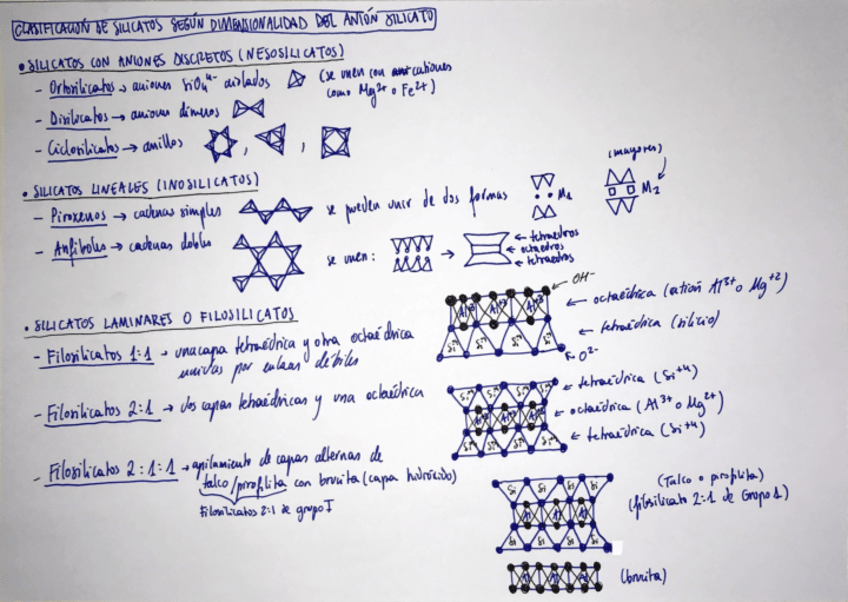 CLASIFICACIÓN DE SILICATOS SEGÚN DIMENSIONALIDAD DEL ANIÓN SILICATO
• SILICATOS CON ANIONES DISCRETOS (NESOSILICATOS)
- Ortosilicatos → aniones SiO₄⁴⁻ aislados (se unen con cationes
como Mg²⁺ o Fe²⁺)
- Disilicatos → aniones dímeros
- Ciclosilicatos → anillos , ,
• SILICATOS LINEALES (INOSILICATOS)
(mayores)
- Piroxenos → cadenas simples se pueden unir de dos formas M₁ M₂
- Anfíboles → cadenas dobles se unen: → ← tetraedros
← octaedros
← tetraedros
• SILICATOS LAMINARES O FILOSILICATOS
OH⁻
Al³⁺ Al³⁺ Al³⁺ ← octaédrica (catión Al³⁺ o Mg⁺²)
Si⁴⁺ Si⁴⁺ Si⁴⁺ Si⁴⁺ ← tetraédrica (silicio)
O²⁻
- Filosilicatos 1:1 → una capa tetraédrica y otra octaédrica
unidas por enlaces débiles
- Filosilicatos 2:1 → dos capas tetraédricas y una octaédrica
← tetraédrica (Si⁺⁴)
← octaédrica (Al³⁺ o Mg²⁺)
← tetraédrica (Si⁺⁴)
- Filosilicatos 2:1:1 → apilamiento de capas alternas de
talco/pirofilita con brucita (capa hidróxido)
Filosilicatos 2:1 de grupo I
Si Si Si Si (Talco o pirofilita)
(filosilicato 2:1 de Grupo 1)
Al Al Al
Si Si Si Si
(brucita)